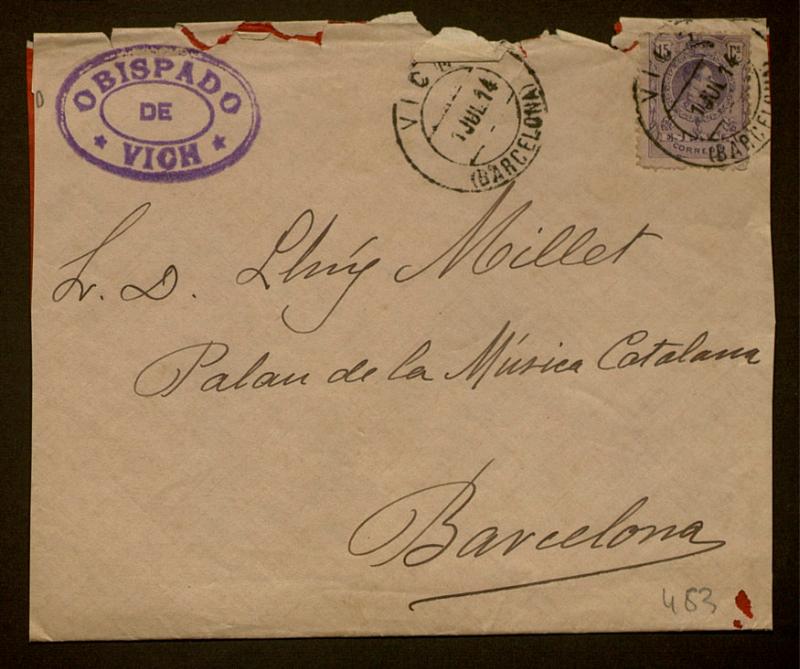 OBISPADO
DE
VICH
VICH
1 JUL 14
(BARCELONA)
15 Cs
CORREOS
VICH
1 JUL 14
(BARCELONA)
Sr. D. Lluís Millet
Palau de la Música Catalana
Barcelona
463